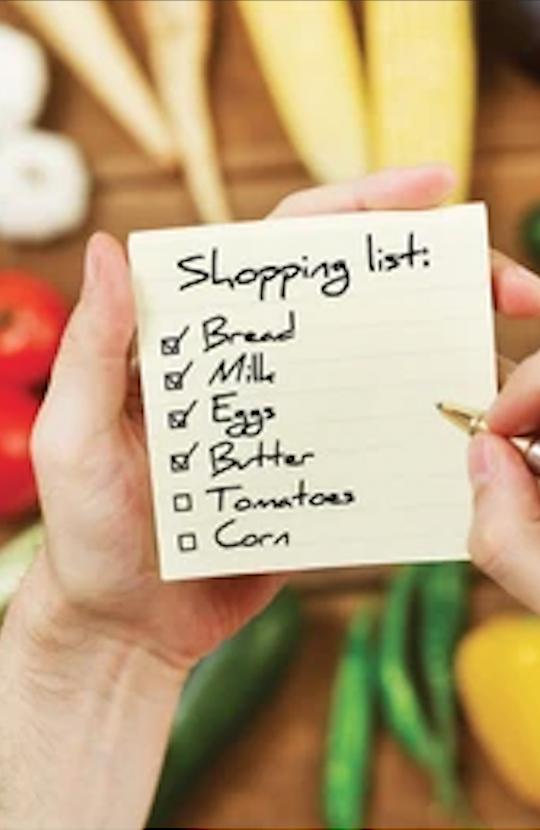 Shopping list:
Bread
Milk
Eggs
Butter
Tomatoes
Corn